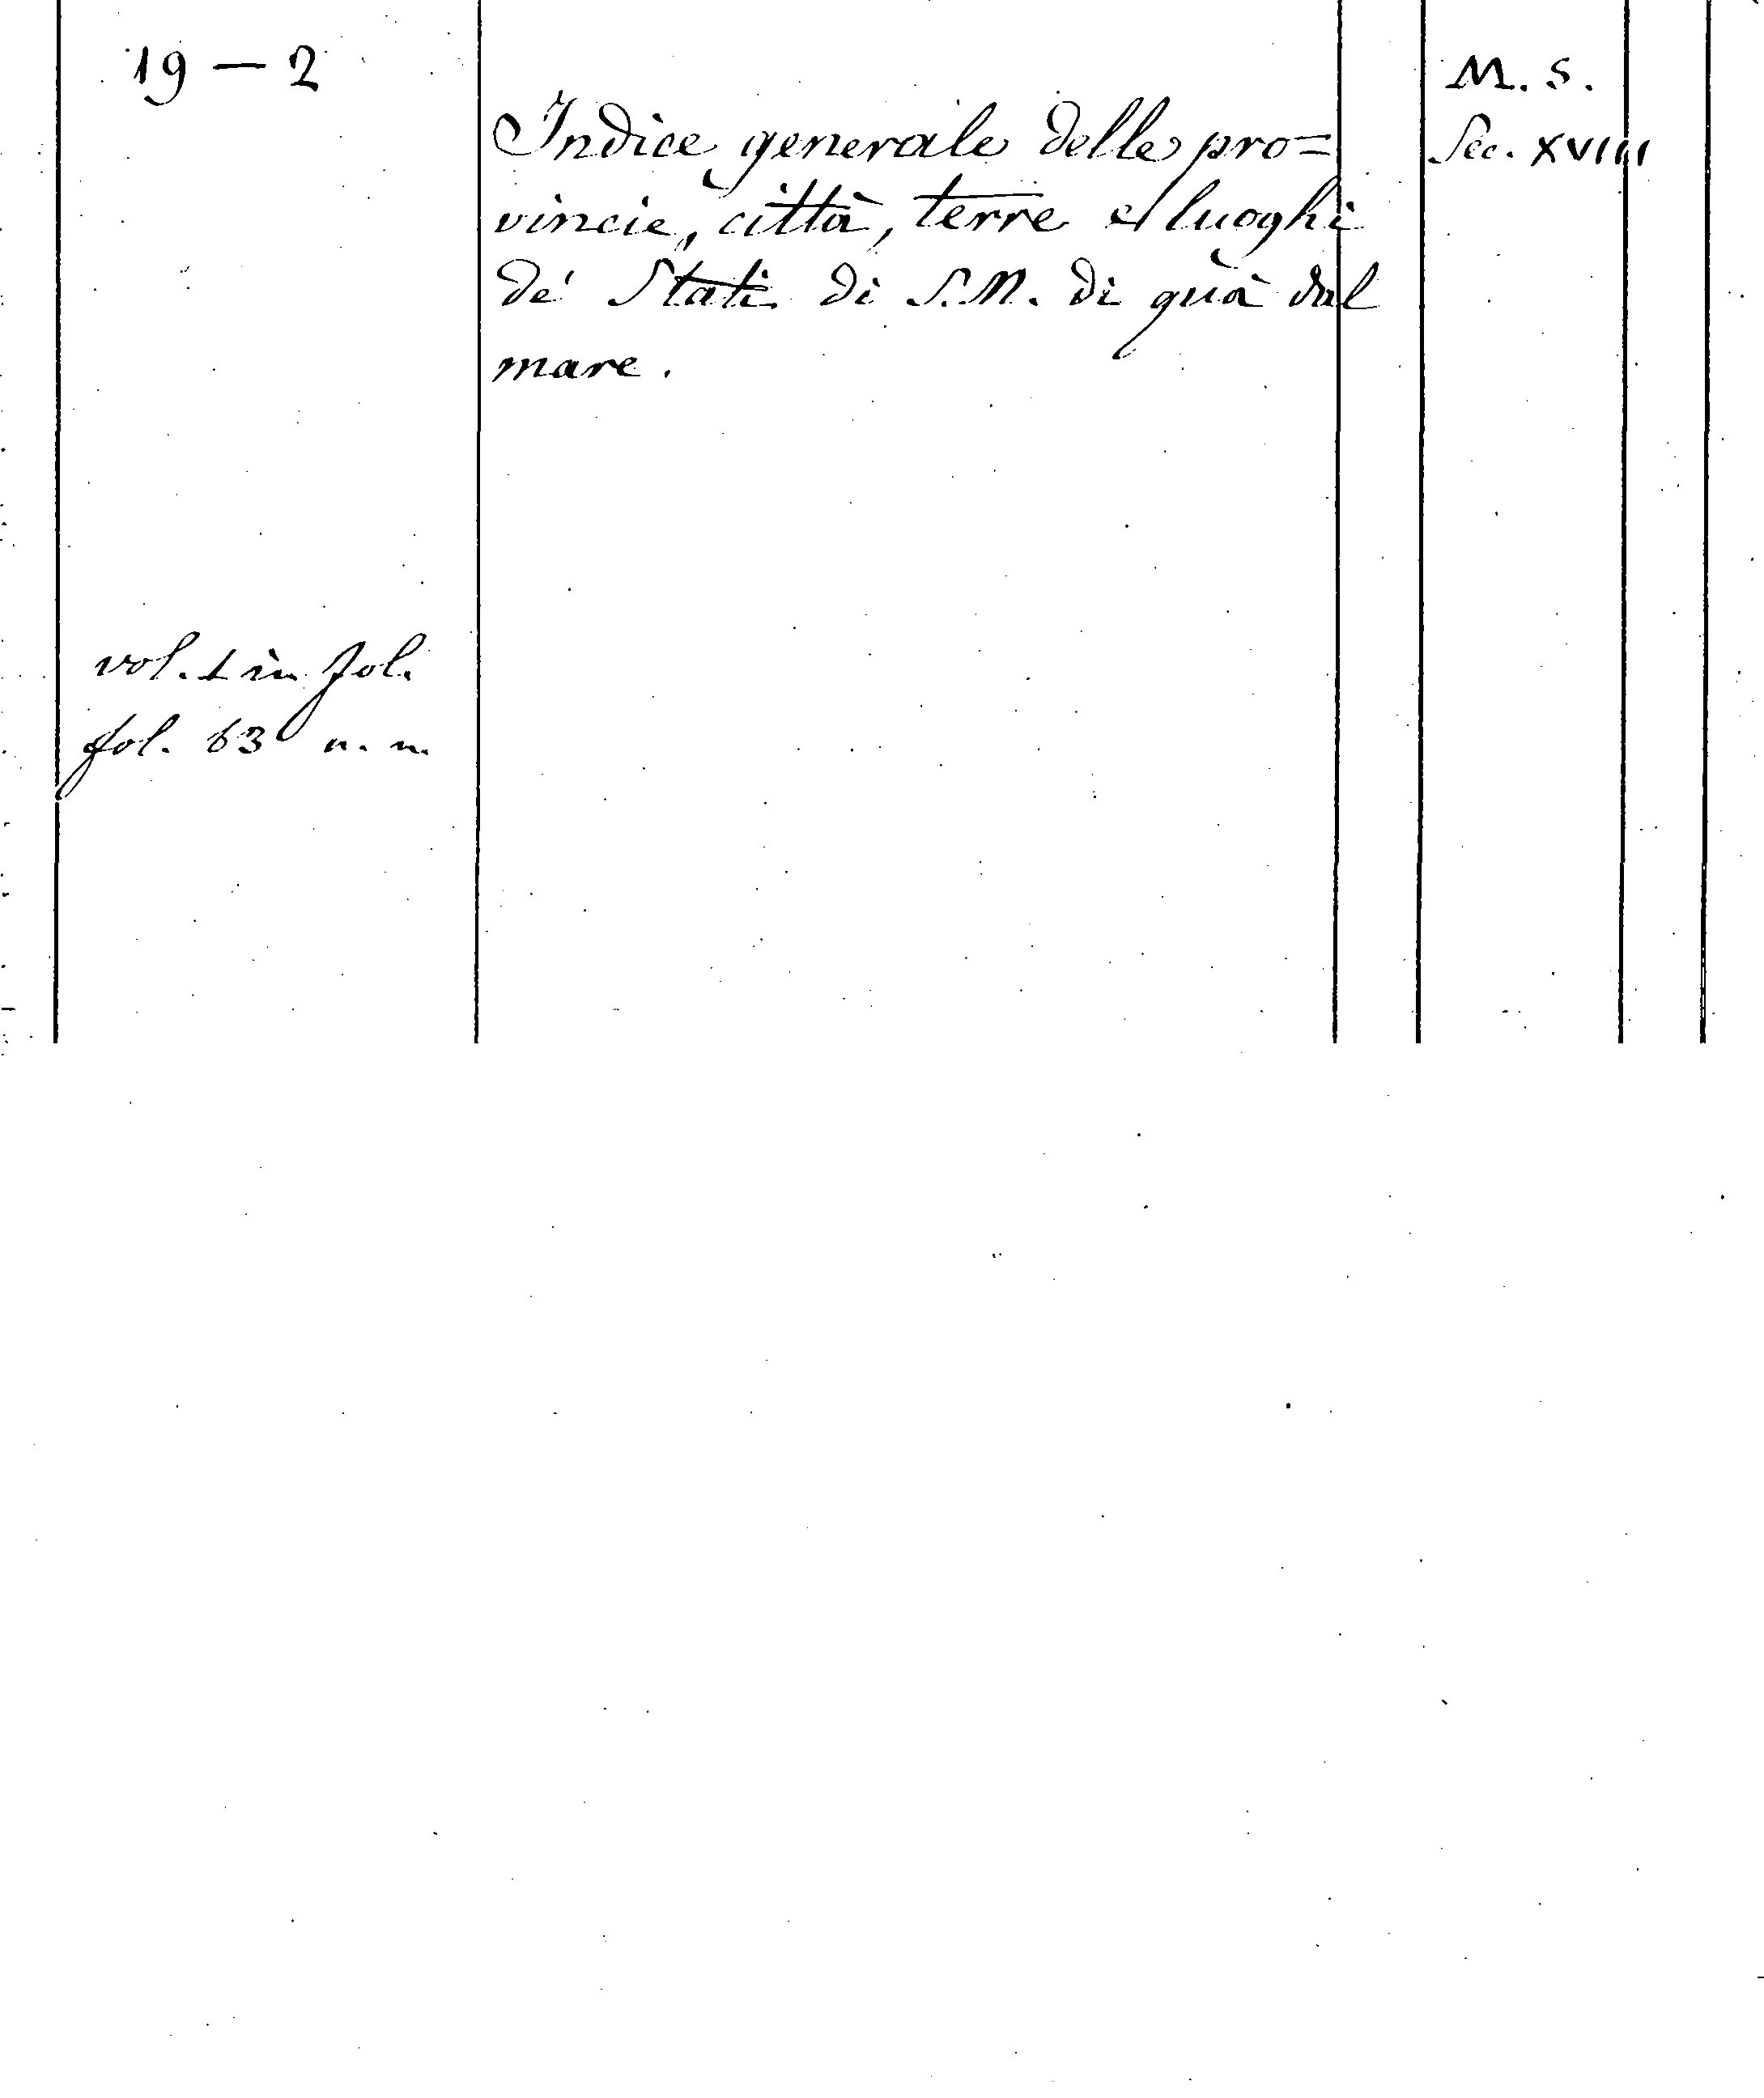 19 — 2
Indice generale delle pro=
vincie, città, terre e luoghi
de' Stati di S.M. di quà dal
mare.
M. S.
Sec. XVIII
vol. 1 in fol.
fol. 63 n. n.